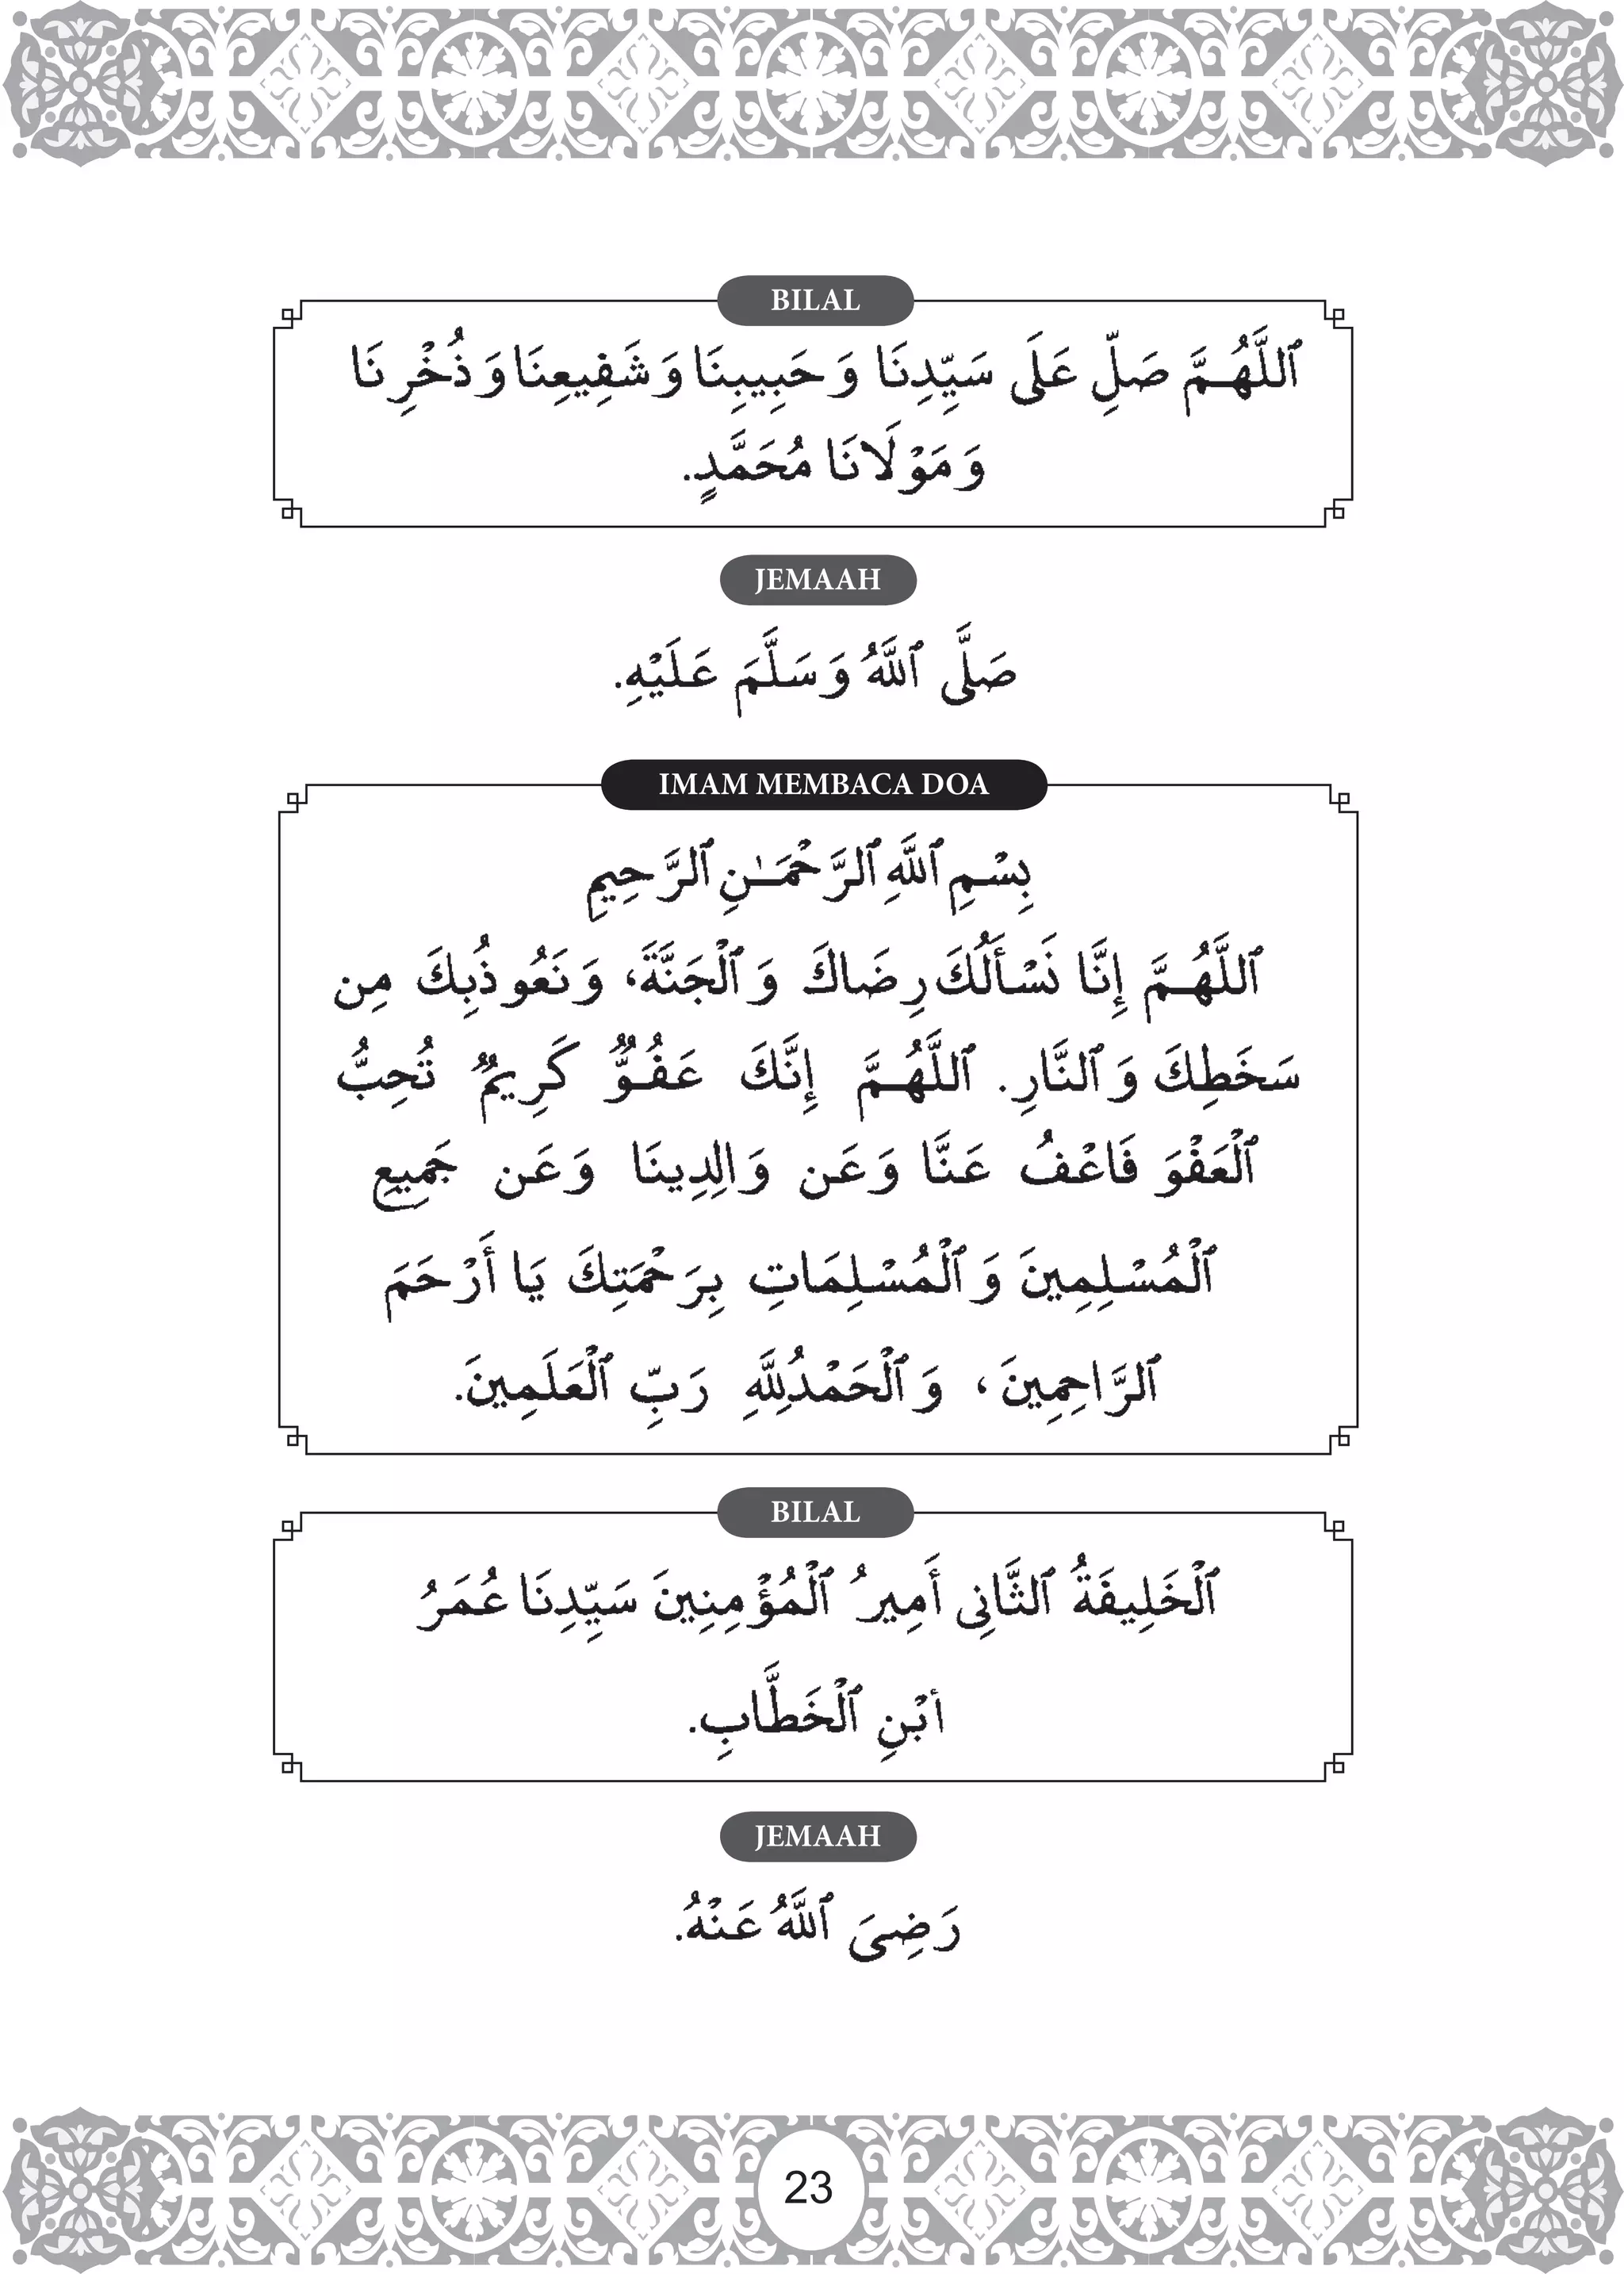 BILAL
ٱللَّهُـمَّ صَلِّ عَلَى سَيِّدِنَا وَحَبِيبِنَا وَشَفِيعِنَا وَذُخْرِنَا
وَمَوْلَانَا مُحَمَّدٍ.
JEMAAH
صَلَّى ٱللَّهُ وَسَلَّمَ عَلَيْهِ.
IMAM MEMBACA DOA
بِسْمِ ٱللَّهِ ٱلرَّحْمَـٰنِ ٱلرَّحِيمِ
ٱللَّهُـمَّ إِنَّا نَسْأَلُكَ رِضَاكَ وَٱلْجَنَّةَ، وَنَعُوذُبِكَ مِن
سَخَطِكَ وَٱلنَّارِ. ٱللَّهُـمَّ إِنَّكَ عَفُـوٌّ كَرِيمٌ تُحِبُّ
ٱلْعَفْوَ فَاعْفُ عَنَّا وَعَن وَالِدِينَا وَعَن جَمِيعِ
ٱلْمُسْلِمِينَ وَٱلْمُسْلِمَاتِ بِرَحْمَتِكَ يَا أَرْحَمَ
ٱلرَّاحِمِينَ، وَٱلْحَمْدُلِلَّهِ رَبِّ ٱلْعَلَمِينَ.
BILAL
ٱلْخَلِيفَةُ ٱلثَّانِى أَمِيرُ ٱلْمُؤْمِنِينَ سَيِّدِنَا عُمَرُ
أبْنِ ٱلْخَطَّابِ.
JEMAAH
رَضِىَ ٱللَّهُ عَنْهُ.
23